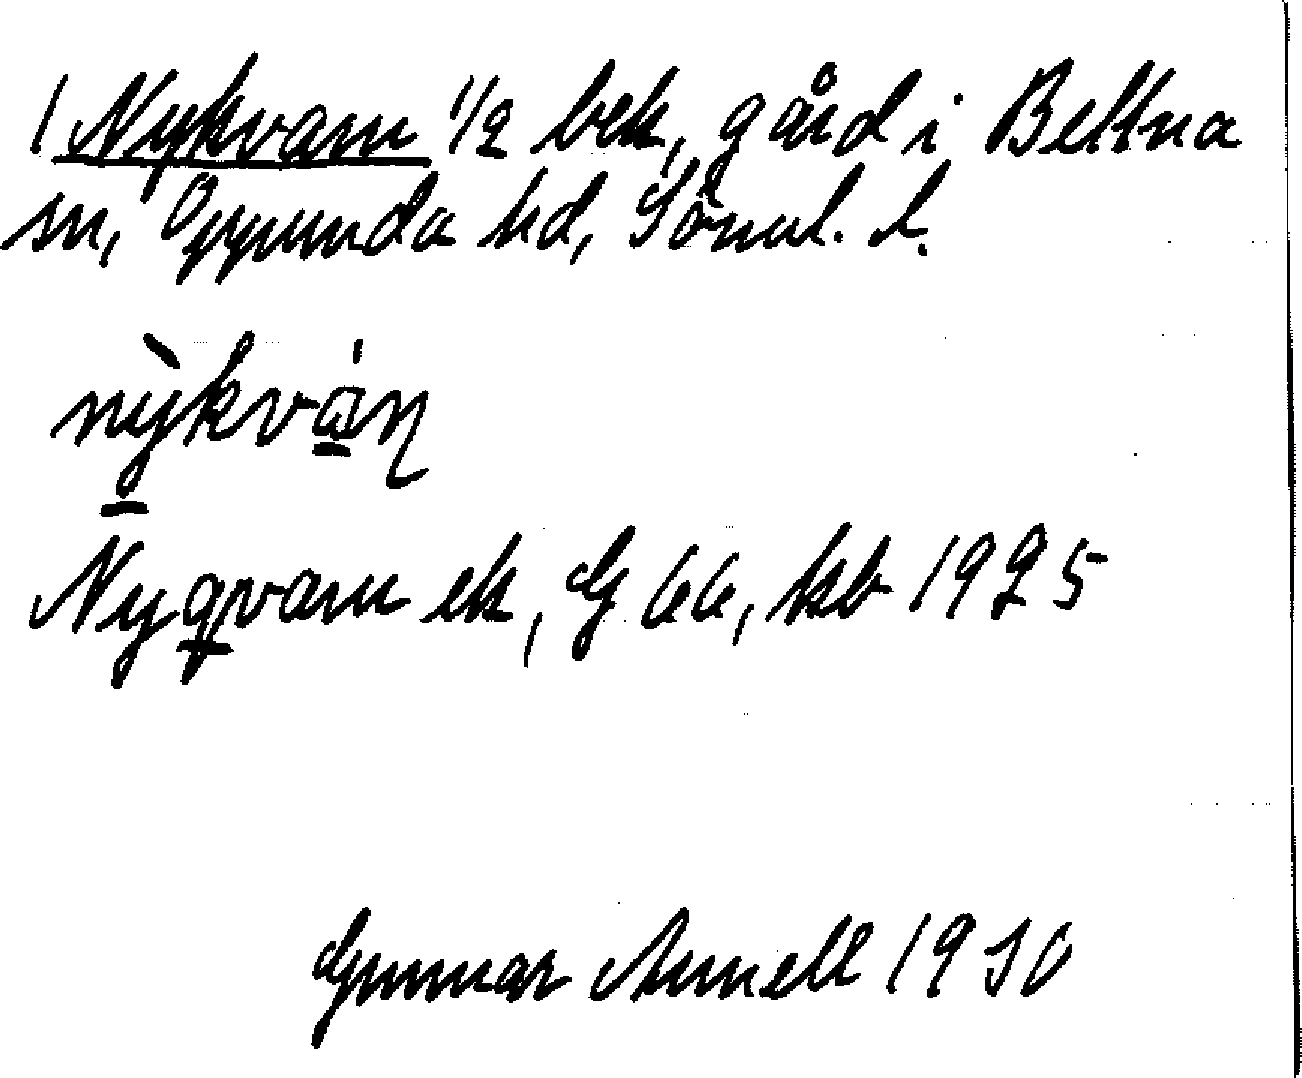 1 Nykvarn 1/2 bek, gård i Bettna
sn, Oppunda hd, Sörml. l.
nỳ̠kvá̠ɳ
Nyqvarn ek, G 66, kb 1925
Gunnar Arnell 1930